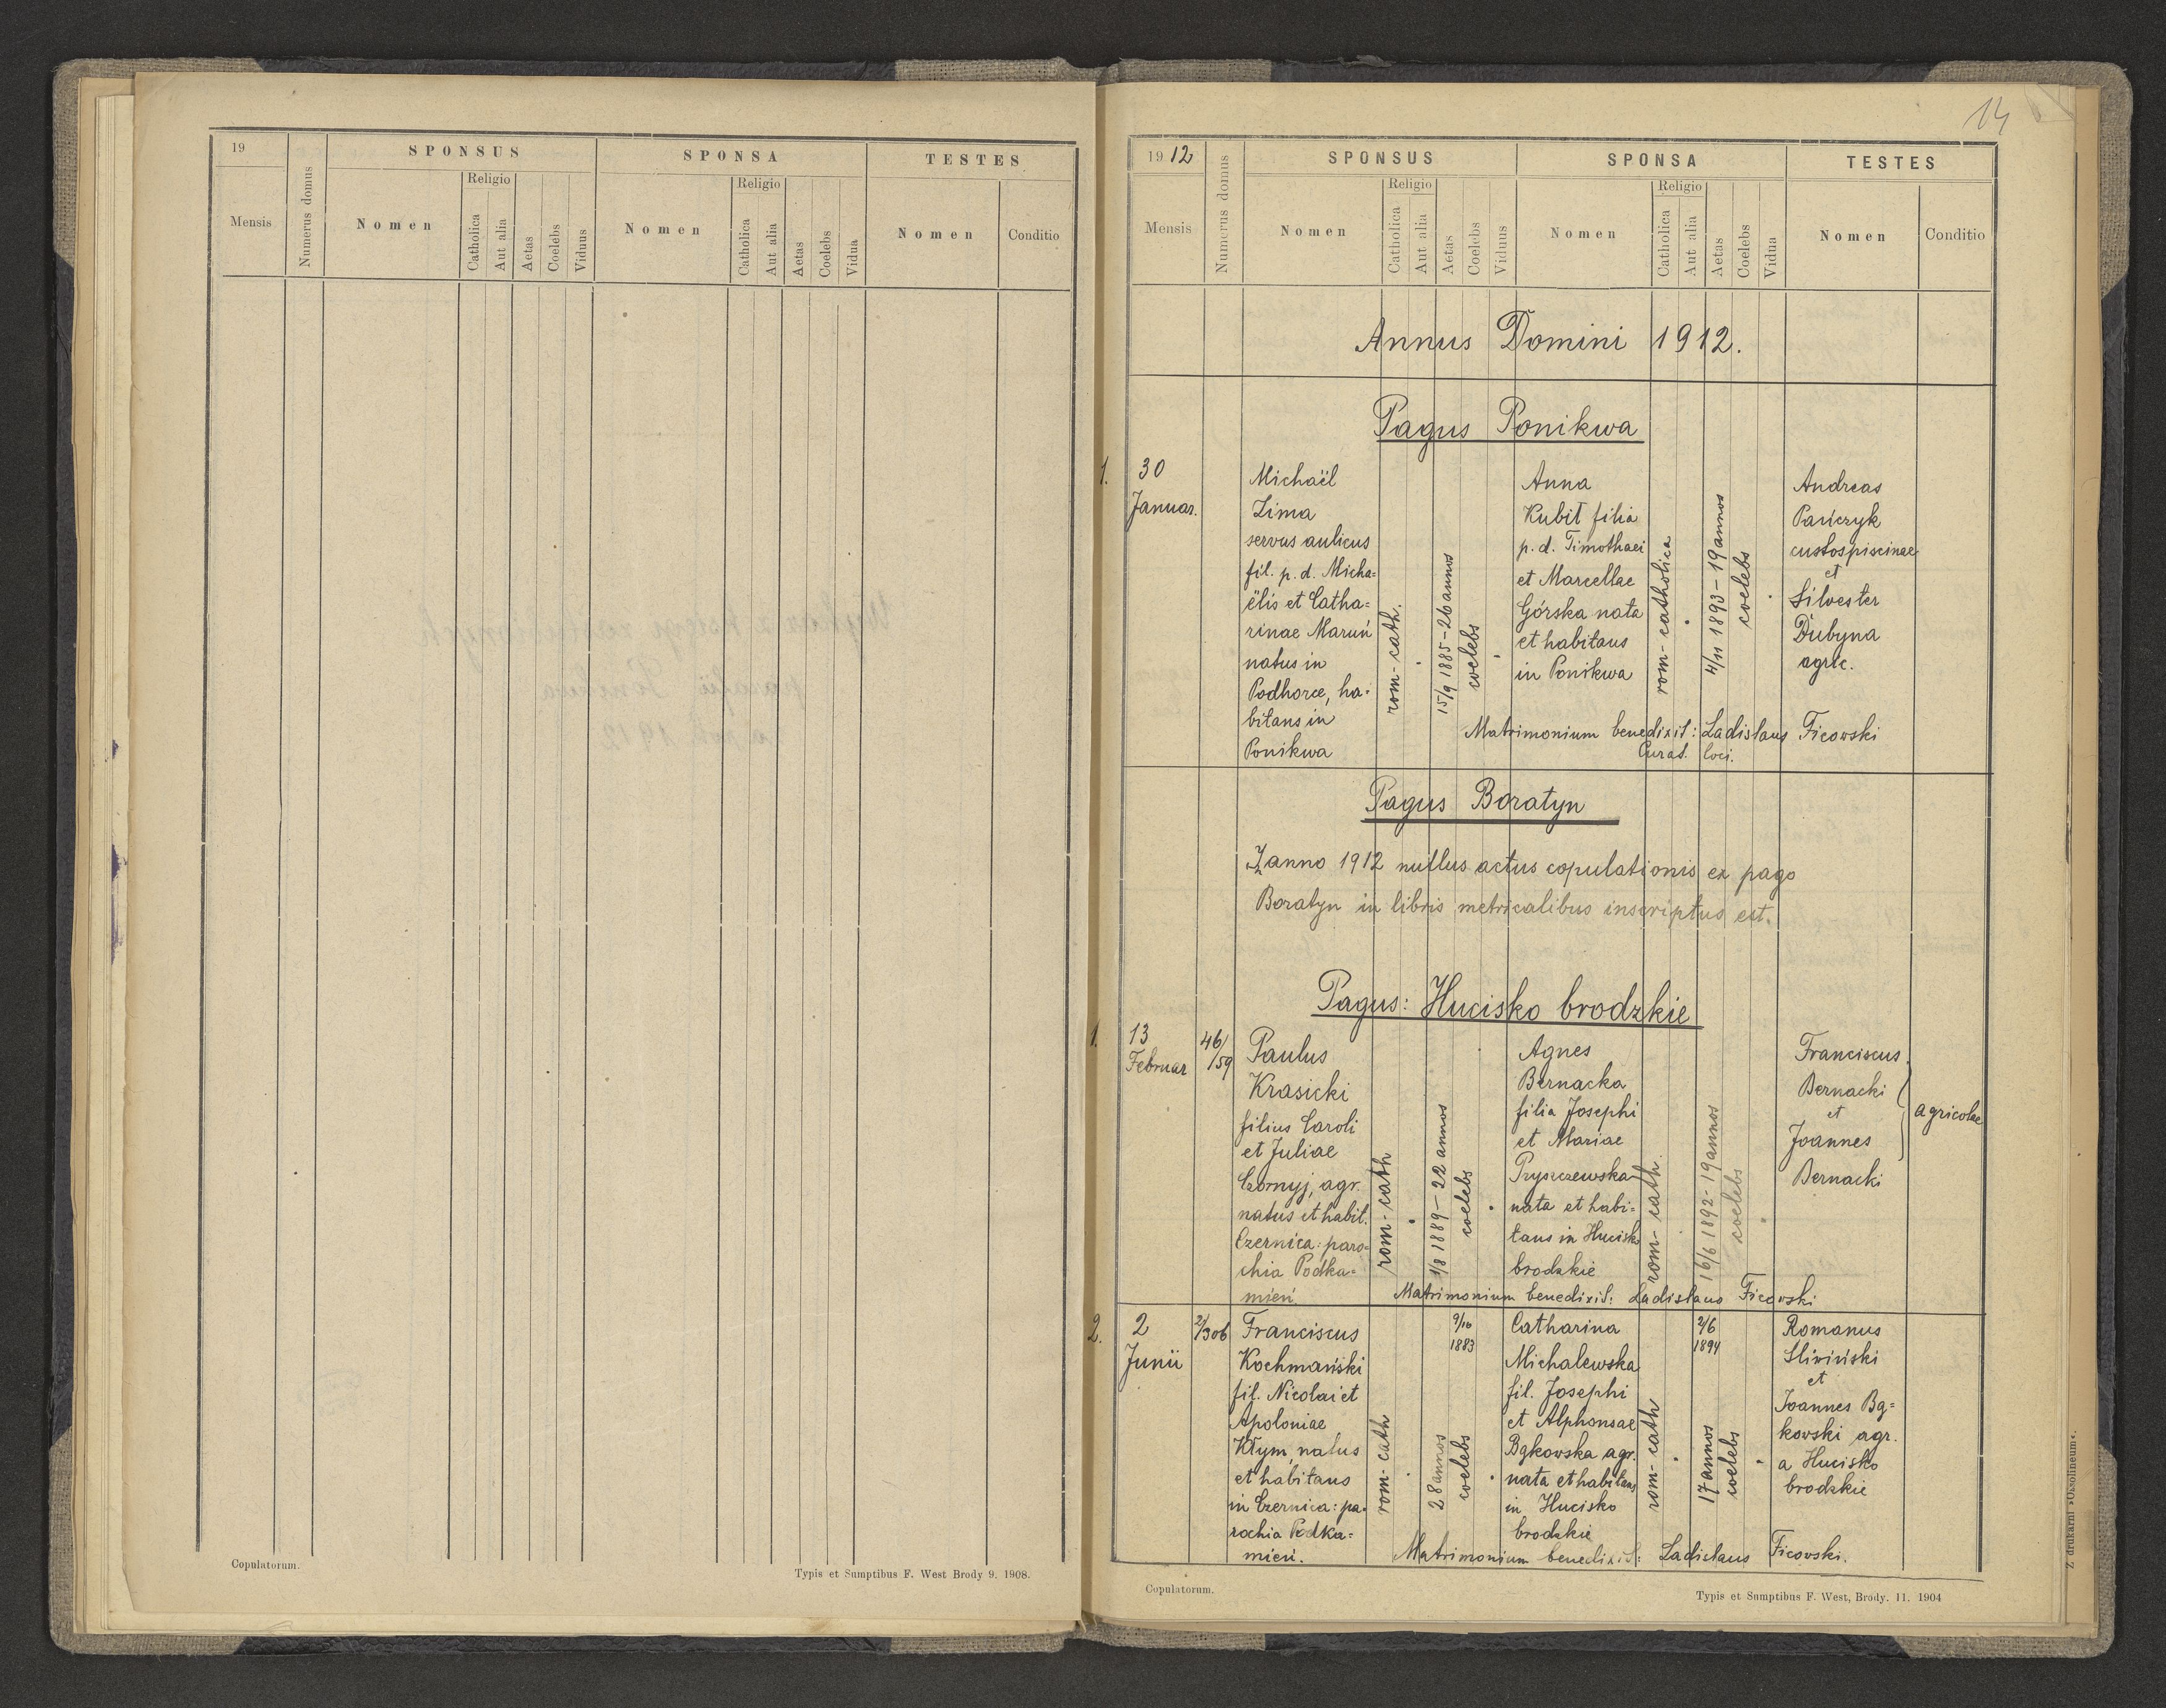 19
Mensis
Numerus domus
SPONSUS
Nomen
Religio
Catholica
Aut alia
Aetas
Coelebs
Viduus
SPONSA
Nomen
Religio
Catholica
Aut alia
Aetas
Coelebs
Vidua
TESTES
Nomen
Conditio
Copulatorum.
Typis et Sumptibus F. West Brody 9. 1908.
14
1912
Mensis
Numerus domus
SPONSUS
Nomen
Religio
Catholica
Aut alia
Aetas
Coelebs
Viduus
SPONSA
Nomen
Religio
Catholica
Aut alia
Aetas
Coelebs
Vidua
TESTES
Nomen
Conditio
Annus Domini 1912.
Pagus Ponikwa
1.
30
Januar.
Michaël
Zima
servus aulicus
fil. p. d. Micha=
ëlis et Catha=
rinae Maruń
natus in
Podhorce, ha=
bitans in
Ponikwa
rom-cath.
15/9 1885-26 annos
coelebs
Anna
Kubit filia
p. d. Timothaei
et Marcellae
Górska nata
et habitans
in Ponikwa
rom-catholica
4/11 1893-19 annos
coelebs
Andreas
Pańczyk
custos piscinae
et
Silvester
Dubyna
agric.
Matrimonium benedixit: Ladislaus Ficowski
Curat. loci.
Pagus Boratyn
Z anno 1912 nullus actus copulationis ex pago
Boratyn in libris metricalibus inscriptus est.
Pagus: Hucisko brodzkie
1.
13
Februar
46/
/59
Paulus
Krasicki
filius Caroli
et Juliae
Czornyj, agr.
natus et habit.
Czernica: paro=
chia Podka=
mień.
rom-cath
1/8 1889-22 annos
coelebs
Agnes
Bernacka
filia Josephi
et Mariae
Pryszczewska
nata et habi=
tans in Hucisko
brodzkie
rom-cath.
16/6 1892-19 annos
coelebs
Franciscus
Bernacki
et
Joannes
Bernacki
agricolae
Matrimonium benedixit: Ladislaus Ficowski
2.
2
Junii
2/306
Franciscus
Kochmański
fil. Nicolai et
Apoloniae
Kłym, natus
et habitans
in Czernica: pa=
rochia Podka=
mień.
rom-cath
9/10
1883
28 annos
coelebs
Catharina
Michalewska
fil. Josephi
et Alphonsae
Bąkowska agr.
nata et habitans
in Hucisko
brodzkie
rom-cath
2/6
1894
17 annos
coelebs
Romanus
Śliwiński
et
Joannes Bą=
kowski agr.
a Hucisko
brodzkie
Matrimonium benedixit: Ladislaus Ficowski.
Copulatorum.
Typis et Sumptibus F. West, Brody. 11. 1904
Z drukarni »Ossolineum«.